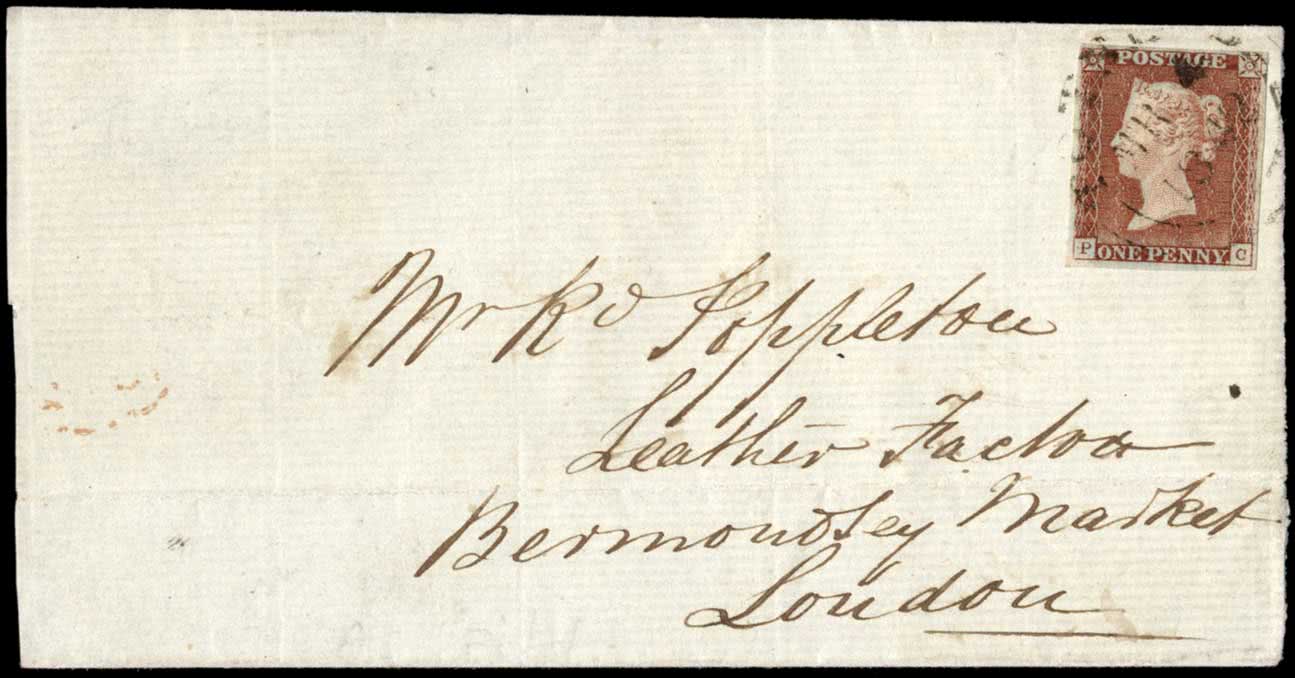 POSTAGE
P ONE PENNY C
Mr Rd Poppleton
Leather Factor
Bermondsey Market
London